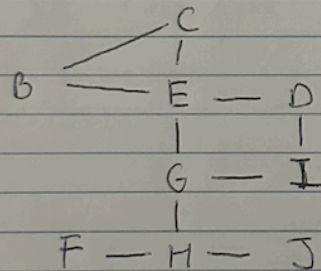 C
B E D
G I
F H J